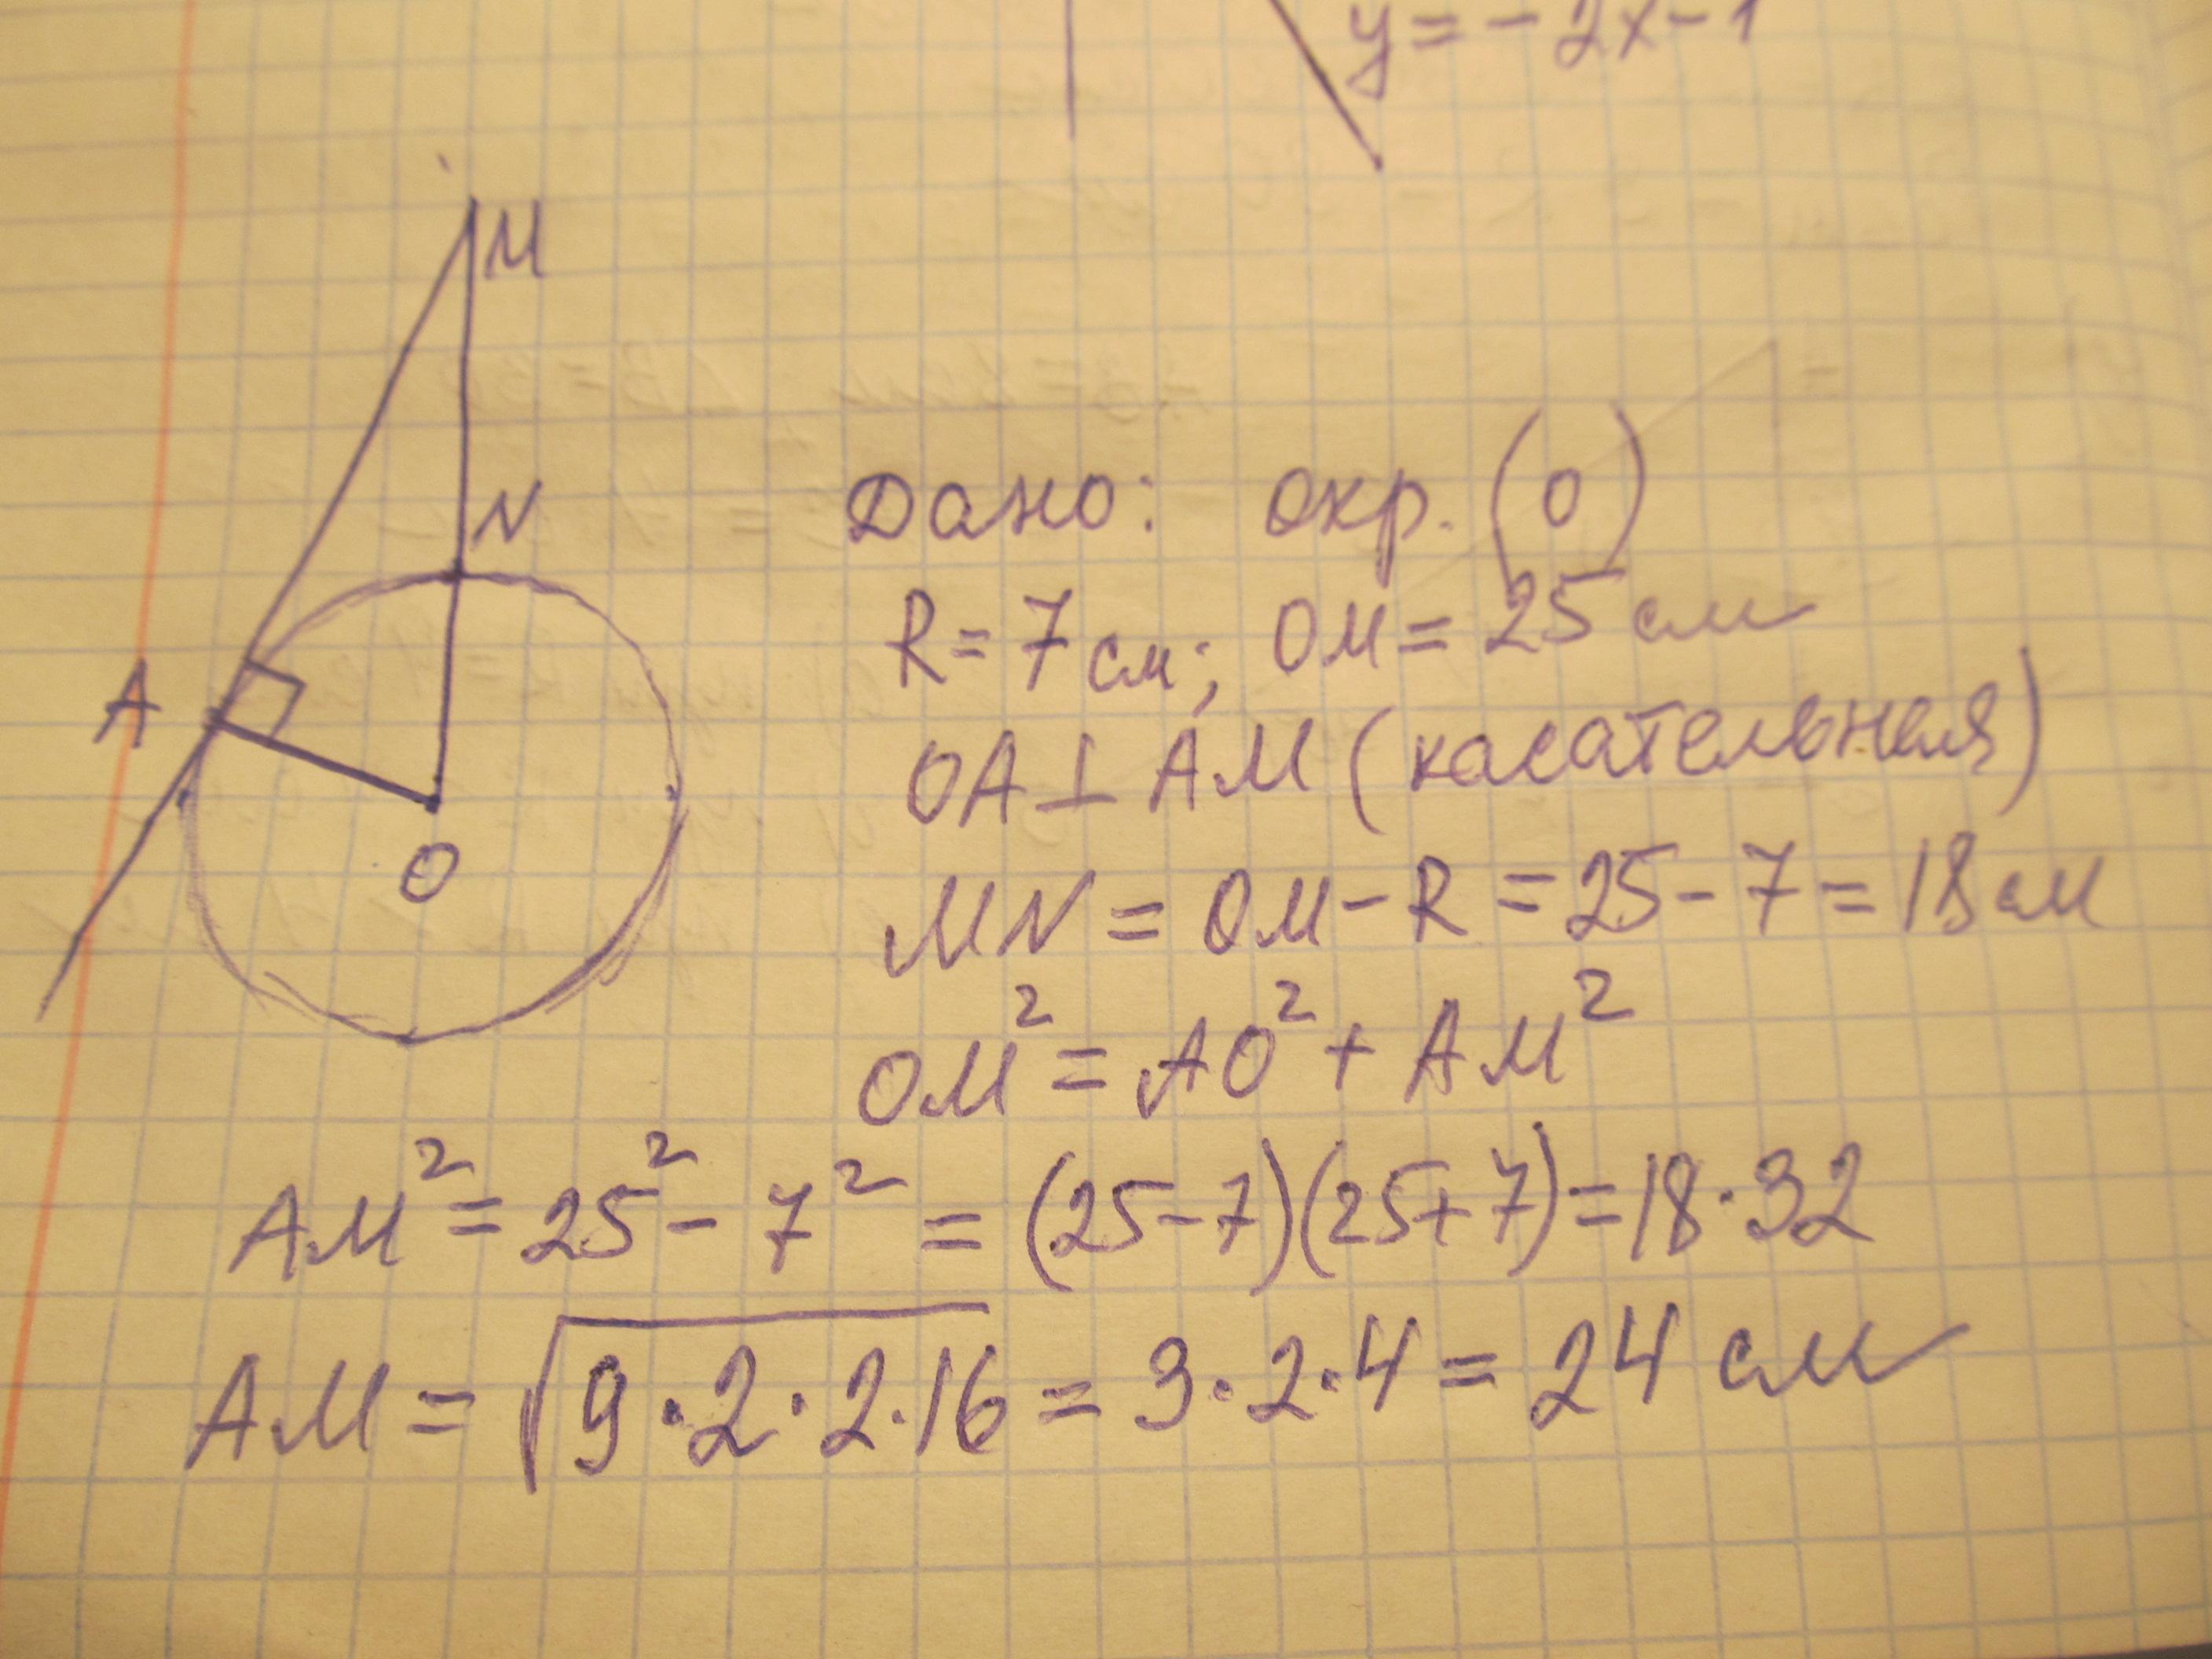 y = - 2x - 1
M
N
A
O
Дано: окр. (O)
R = 7 см; OM = 25 см
OA ⊥ AM (касательная)
MN = OM - R = 25 - 7 = 18 см
OM² = AO² + AM²
AM² = 25² - 7² = (25 - 7)(25 + 7) = 18 · 32
AM = √9 · 2 · 2 · 16 = 3 · 2 · 4 = 24 см